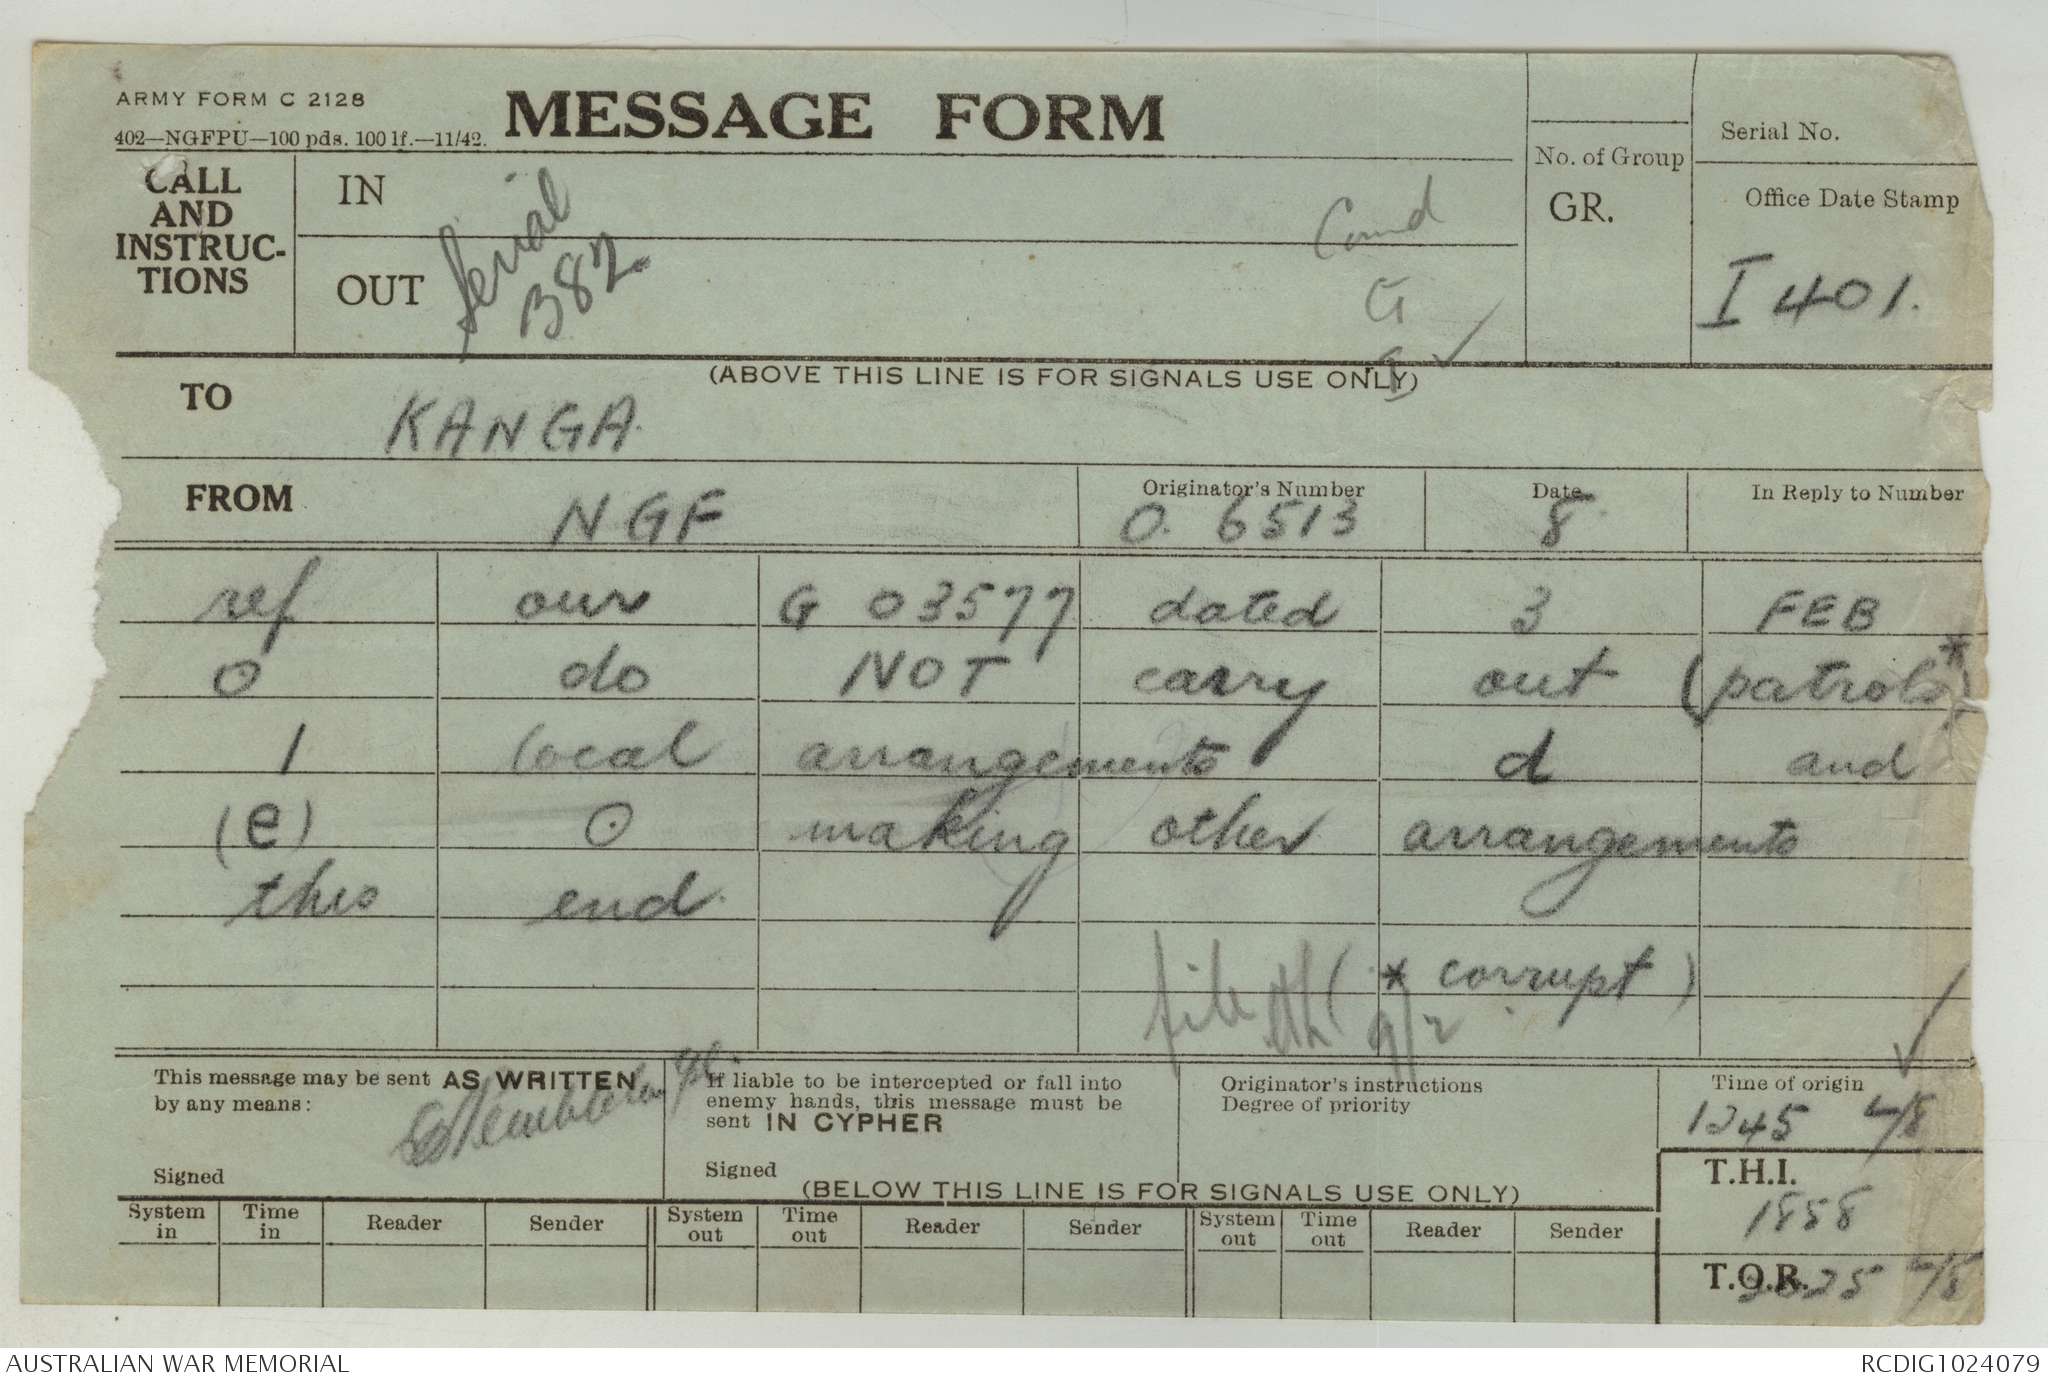 ARMY FORM C 2128
402—NGFPU—100 pds. 100 lf.—11/42.
MESSAGE FORM
No. of Group
GR.
Serial No.
Office Date Stamp
I 401.
CALL
AND
INSTRUC-
TIONS
IN
OUT
Serial
B82
Comd
G
(ABOVE THIS LINE IS FOR SIGNALS USE ONLY)
TO KANGA
FROM NGF
Originator's Number
O. 6513
Date
8
In Reply to Number
ref our G 03577 dated 3 FEB
O do NOT carry out (patrols*)
1 local arrangements d and
(e) O making other arrangements
this end
(* corrupt)
file
9/2
This message may be sent AS WRITTEN
by any means:
Signed
If liable to be intercepted or fall into
enemy hands, this message must be
sent IN CYPHER
Signed
Originator's instructions
Degree of priority
Time of origin
1245
T.H.I.
1858
T.O.R.
(BELOW THIS LINE IS FOR SIGNALS USE ONLY)
System in Time in Reader Sender System out Time out Reader Sender System out Time out Reader Sender
AUSTRALIAN WAR MEMORIAL RCDIG1024079